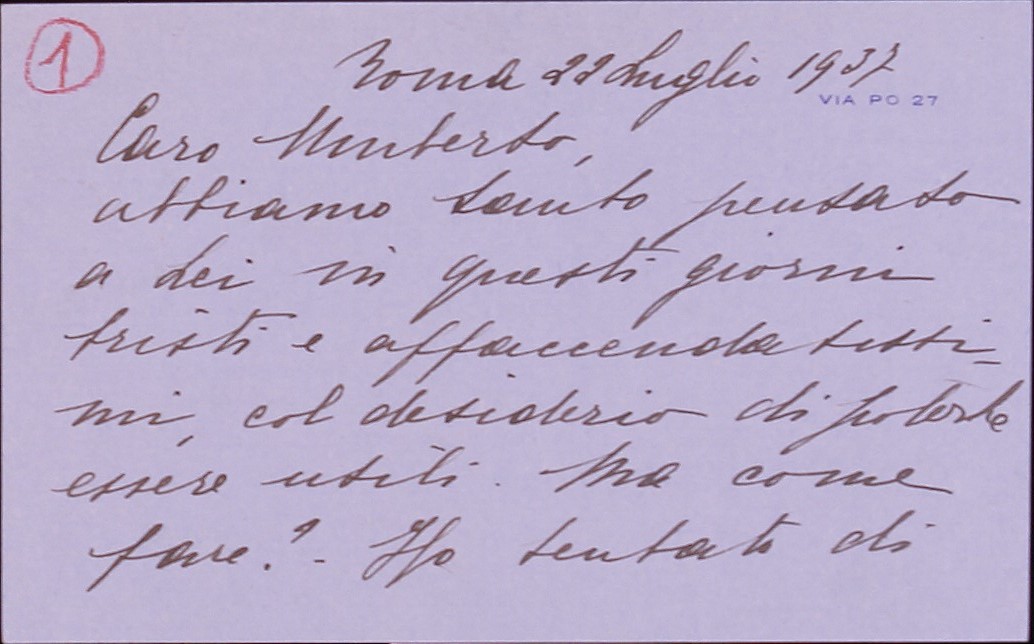 1
Roma 22 Luglio 1937
VIA PO 27
Caro Umberto,
abbiamo tanto pensato
a Lei in questi giorni
tristi e affaccendatissi-
mi, col desiderio di poterle
essere utili. Ma come
fare?- Ho tentato di